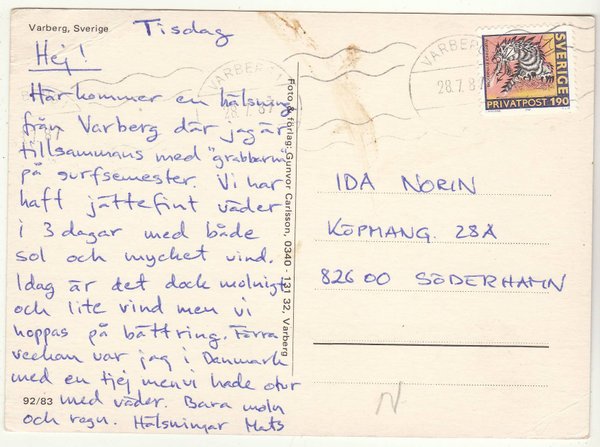 Varberg, Sverige
Tisdag
Hej!
Här kommer en hälsning
från Varberg där jag är
tillsammans med "grabbarna"
på surfsemester. Vi har
haft jättefint väder
i 3 dagar med både
sol och mycket vind.
Idag är det dock molnigt
och lite vind men vi
hoppas på bättring. Förra
veckan var jag i Danmark
med en tjej men vi hade otur
med väder. Bara moln
och regn. Hälsningar Mats
92/83
Foto & förlag: Gunvor Carlsson, 0340 - 131 32, Varberg
VARBERG
28.7.87
VARBERG
28.7.87
SVERIGE
PRIVATPOST 190
IDA NORIN
KÖPMANG. 28A
826 00 SÖDERHAMN
N